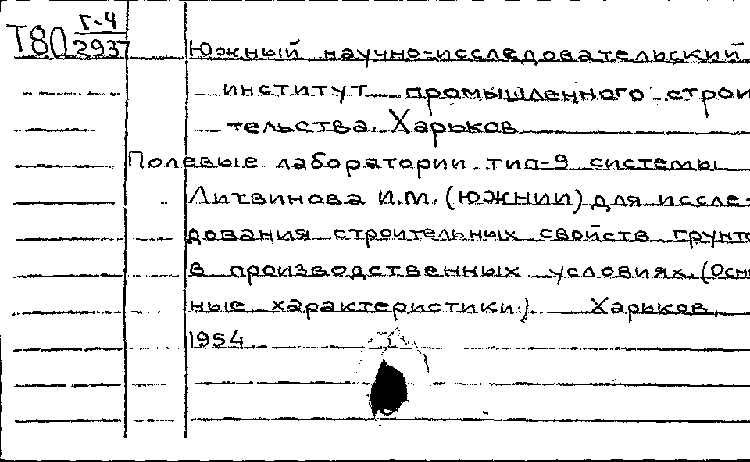 Т80 Г-4
2937
Южный научно-исследовательский
институт промышленного строи
тельства. Харьков
Полевые лаборатории тип-9 системы
Литвинова И.М. (ЮЖНИИ) для иссле-
дования строительных свойств грунто
в производственных условиях. (Осн
ные характеристики). Харьков,
1954